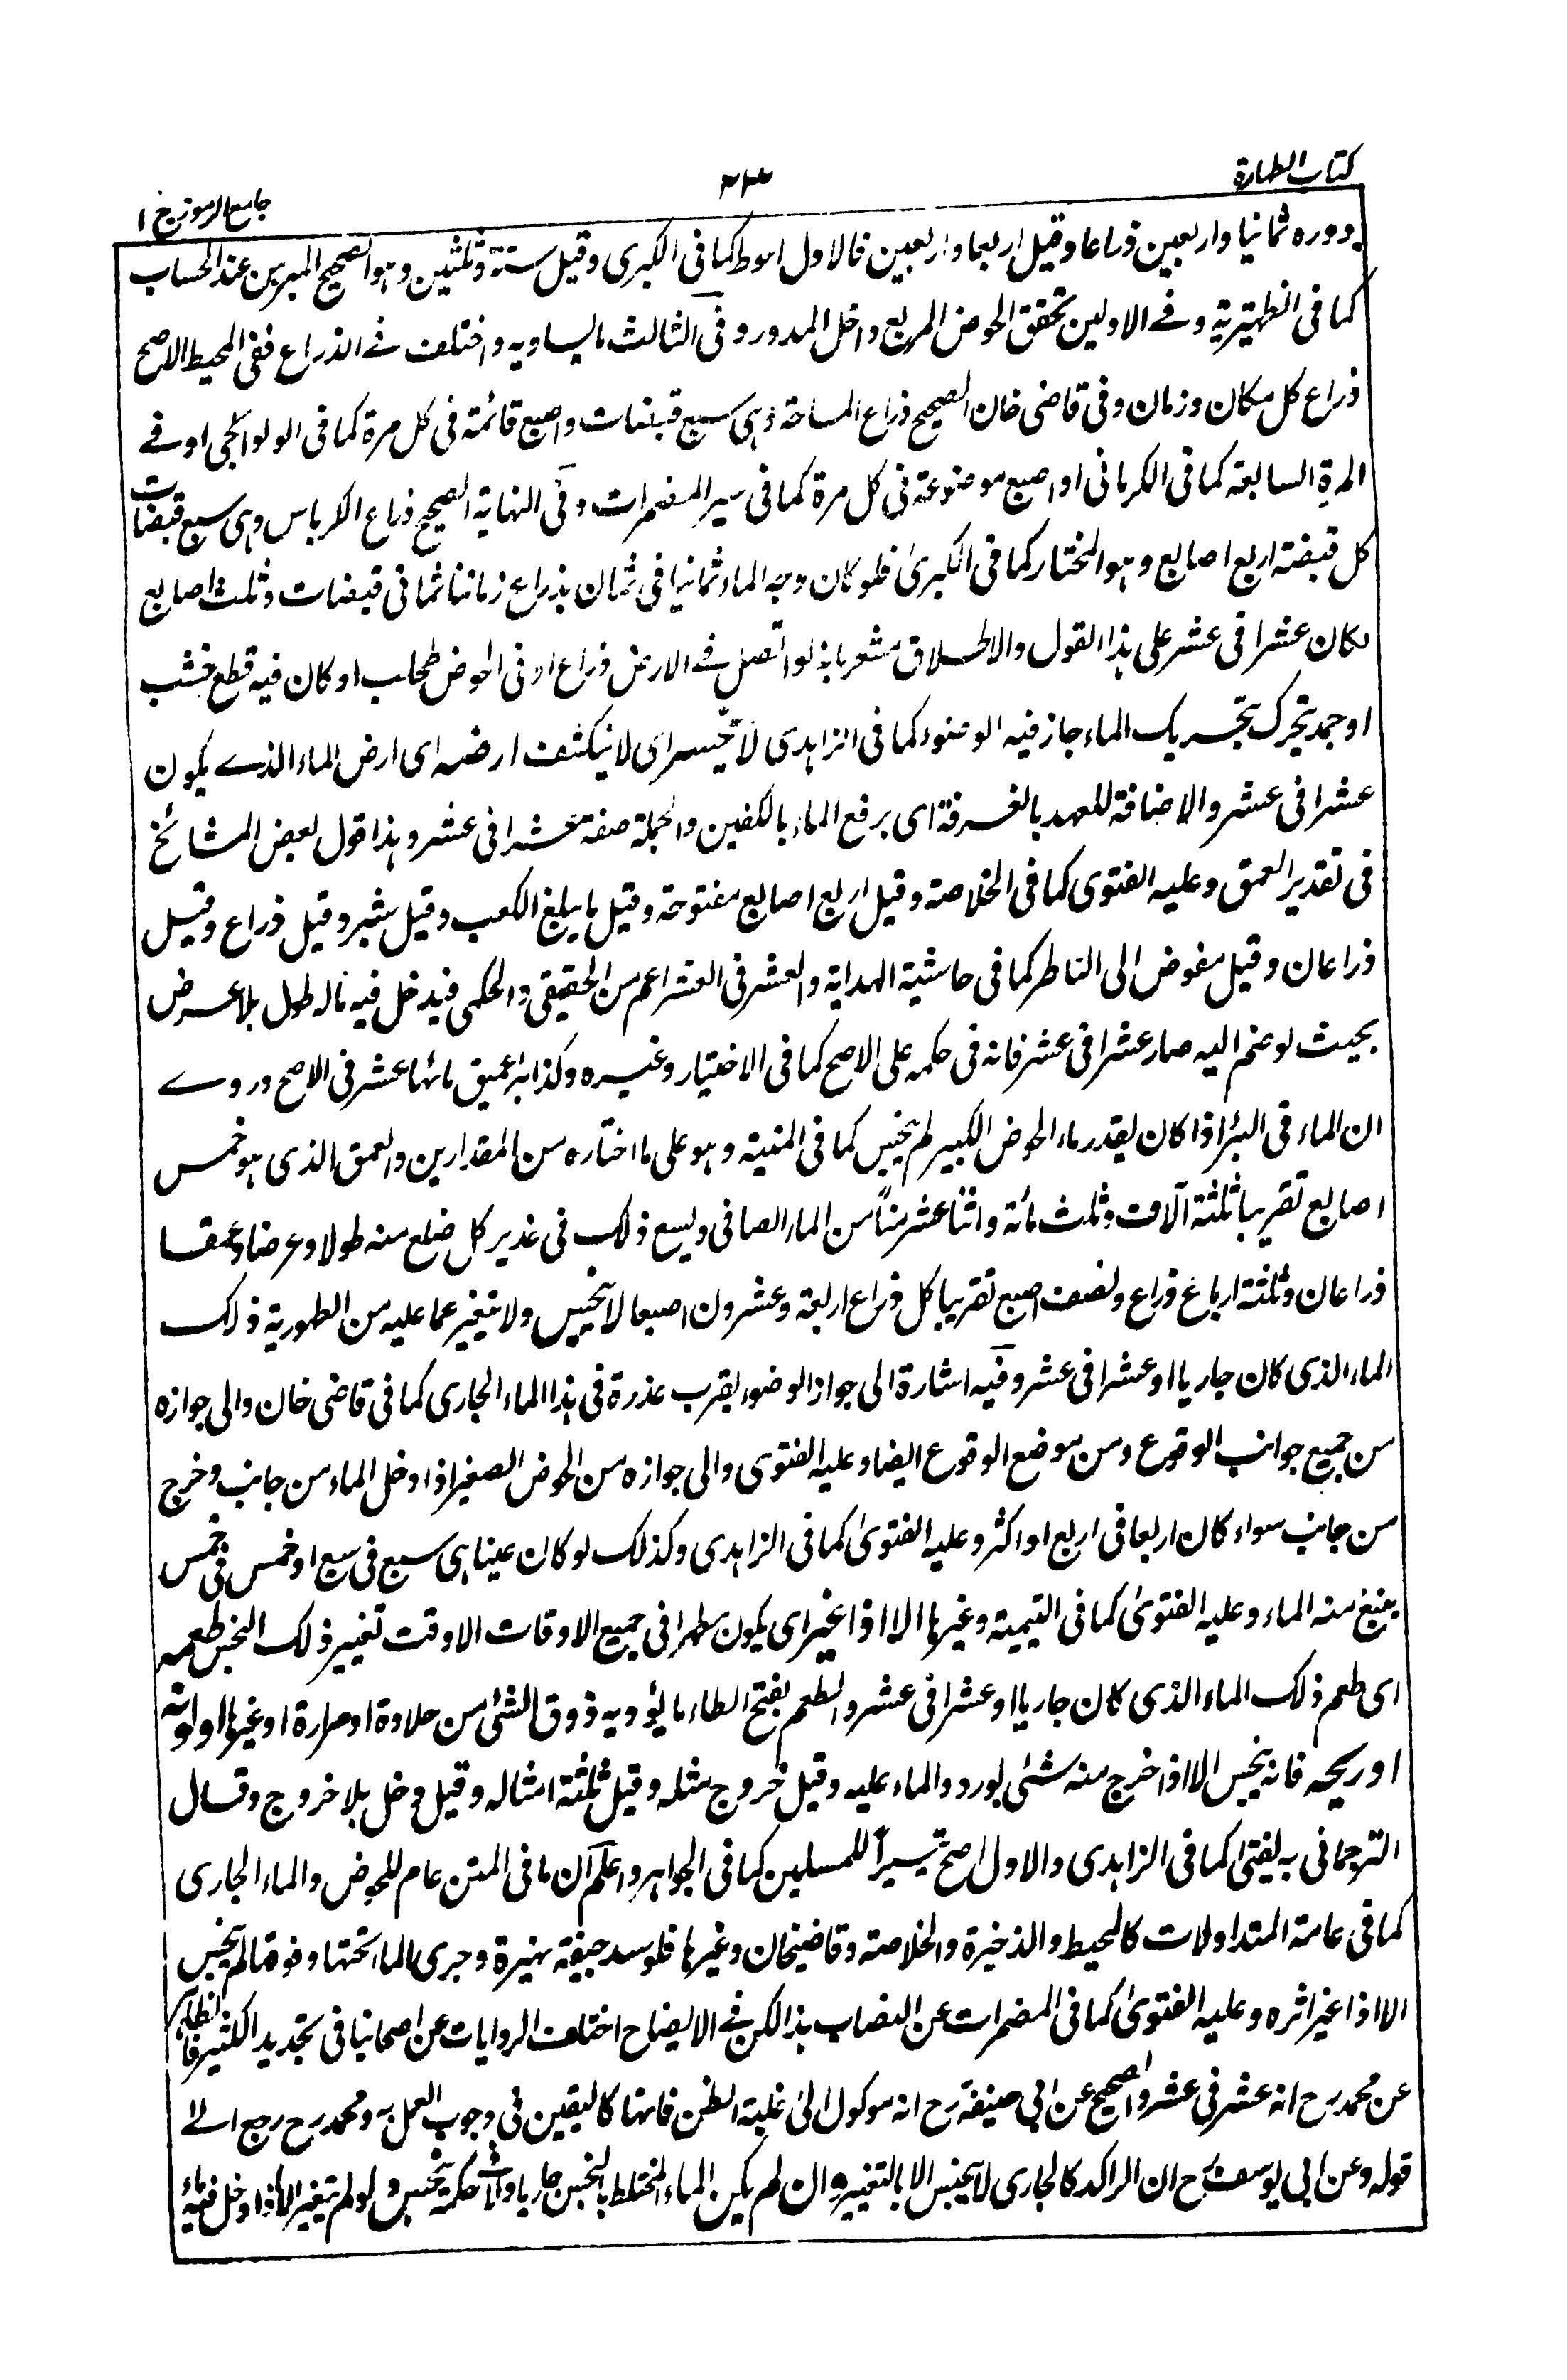 كتاب الطهارة
٤٣
جامع الرموز ج ١
دوره ثمانيا واربعين ذراعا وقيل اربعا واربعين فالاول احوط كما فى الكبرى وقيل ستة وثلثين وهو الصحيح المبرهن عند الحساب
كما فى الظهيرية وفى الاولين تحقق الحوض المربع داخل المدور وفى الثالث ما يساويه واختلف فى الذراع ففى المحيط الاصح
ذراع كل مكان وزمان وفى قاضى خان الصحيح ذراع المساحة وهى سبع قبضات واصبع قائمة فى كل مرة كما فى الولوالجى او فى
المرة السابعة كما فى الكرمانى او اصبع موضوعة فى كل مرة كما فى سير المضمرات وفى النهاية الصحيح ذراع الكرباس وهى سبع قبضات
كل قبضة اربع اصابع وهو المختار كما فى الكبرىٰ فلو كان وجه الماء ثمانيا فى ثمان بذراع زماننا ثمانى قبضات وثلث اصابع
لكان عشرا فى عشر على هذا القول والاطلاق مشعر بانه لو اتصل فى الارض ذراع او فى الحوض طحلب او كان فيه قطع خشب
او جمد يتحرك بتحريك الماء جاز فيه الوضوء كما فى الزاهدى لا ينحسر اى لا ينكشف ارضه اى ارض الماء الذى يكون
عشرا فى عشر والاضافة للعهد بالغرفة اى برفع الماء بالكفين والجملة صفة عشرا فى عشر وهذا قول بعض المشائخ
فى تقدير العمق وعليه الفتوى كما فى الخلاصة وقيل اربع اصابع مفتوحة وقيل ما يبلغ الكعب وقيل شبر وقيل ذراع وقيل
ذراعان وقيل مفوض الى الناظر كما فى حاشية الهداية والعشر فى العشر اعم من الحقيقى والحكمى فيدخل فيه ما له طول بلا عرض
بحيث لو ضم اليه صار عشرا فى عشر فانه فى حكمه على الاصح كما فى الاختيار وغيره وكذا بئر عميق ماؤها عشر فى الاصح وروى
ان الماء فى البئر اذا كان بقدر ماء الحوض الكبير لم ينجس كما فى المنية وهو على ما اختاره من المقدارين والعمق الذى هو خمس
اصابع تقريبا ثلثة آلاف وثلث مائة واثنا عشر منًّا من الماء الصافى ويسع ذلك فى غدير كل ضلع منه طولا وعرضا وعمقا
ذراعان وثلثة ارباع ذراع ونصف اصبع تقريبا كل ذراع اربعة وعشرون اصبعا لا ينجس ولا يتغير عما عليه من الطهورية ذلك
الماء الذى كان جاريا او عشرا فى عشر وفيه اشارة الى جواز الوضوء بقرب عذرة فى هذا الماء الجارى كما فى قاضى خان والى جوازه
من جميع جوانب الوقوع ومن موضع الوقوع ايضا وعليه الفتوى والى جوازه من الحوض الصغير اذا دخل الماء من جانب وخرج
من جانب سواء كان اربعا فى اربع او اكثر وعليه الفتوىٰ كما فى الزاهدى وكذلك لو كان عينا هى سبع فى سبع او خمس فى خمس
ينبع منه الماء وعليه الفتوىٰ كما فى التيمية وغيرها الا اذا غير اى يكون مطهرا فى جميع الاوقات الا وقت تغيير ذلك النجس طعمه
اى طعم ذلك الماء الذى كان جاريا او عشرا فى عشر والطعم بفتح الطاء ما يؤديه ذوق الشئ من حلاوة او مرارة او غيرها او لونه
او ريحه فانه ينجس الا اذا خرج منه شئى بورود الماء عليه وقيل خروج مثله وقيل ثلثة امثاله وقيل دخل بلا خروج وقال
الترجمانى به يفتىٰ كما فى الزاهدى والاول اصح تيسيراً للمسلمين كما فى الجواهر واعلم ان ما فى المتن عام للحوض والماء الجارى
كما فى عامة المتداولات كالمحيط والذخيرة والخلاصة وقاضيخان وغيرها فلو سد جيفة نهيرة وجرى الماء تحتها وفوقها لم ينجس
الا اذا غير اثره وعليه الفتوىٰ كما فى المضمرات عن النصاب هذا لكن فى الايضاح اختلف الروايات عن اصحابنا فى تحديد الكثير فالظاهر
عن محمد رح انه عشر فى عشر والصحيح عن ابى حنيفة رح انه موكول الىٰ غلبة الظن فانها كاليقين فى وجوب العمل به ومحمد رح رجع الى
قوله وعن ابى يوسف رح ان الراكد كالجارى لا ينجس الا بالتغيير وان لم يكن الماء المختلط بالنجس جاريا او فى حكمه ينجس ولو لم يتغير الا اذا دخل فيه